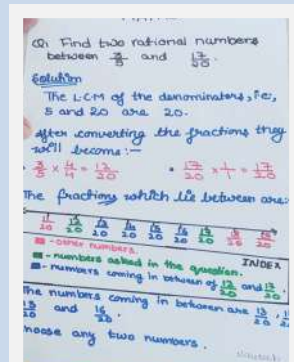 Q) Find two rational numbers
between 3/5 and 17/20.
Solution
The L.C.M of the denominators, i.e;
5 and 20 are 20.
After converting the fractions they
will become:-
• 3/5 × 4/4 = 12/20 • 17/20 × 1/1 = 17/20
The fractions which lie between are:
11/20 12/20 13/20 14/20 15/20 16/20 17/20 18/20
- other numbers. INDEX
- numbers asked in the question.
- numbers coming in between of 12/20 and 17/20.
The numbers coming in between are 13/20,
15/20 and 16/20.
hoose any two numbers.